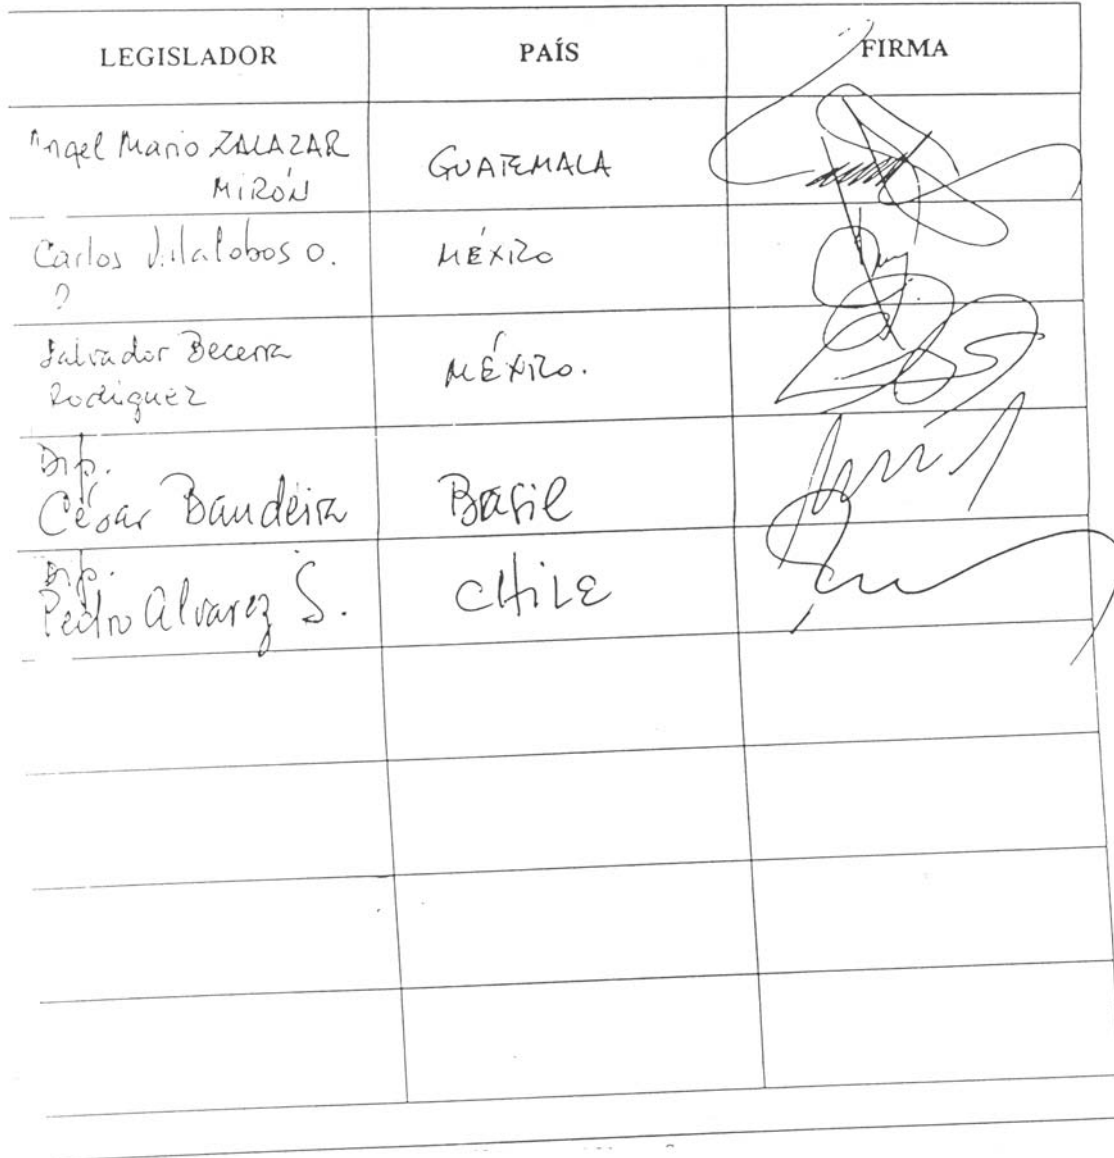 LEGISLADOR PAÍS FIRMA
Angel Mario ZALAZAR
MIRÓN GUATEMALA
Carlos Villalobos O. MÉXICO
Salvador Becerra
Rodriguez MÉXICO.
Dip.
César Bandeira Brasil
Dip.
Pedro Alvarez S. CHILE